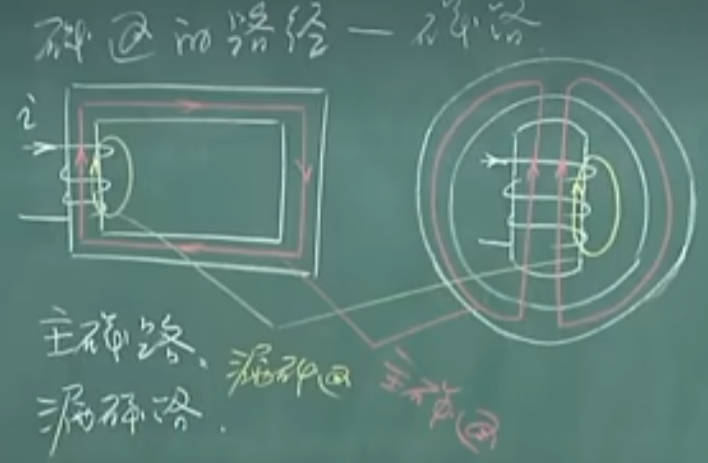 磁通的路径—磁路
i
主磁路、
漏磁通
主磁通
漏磁路.